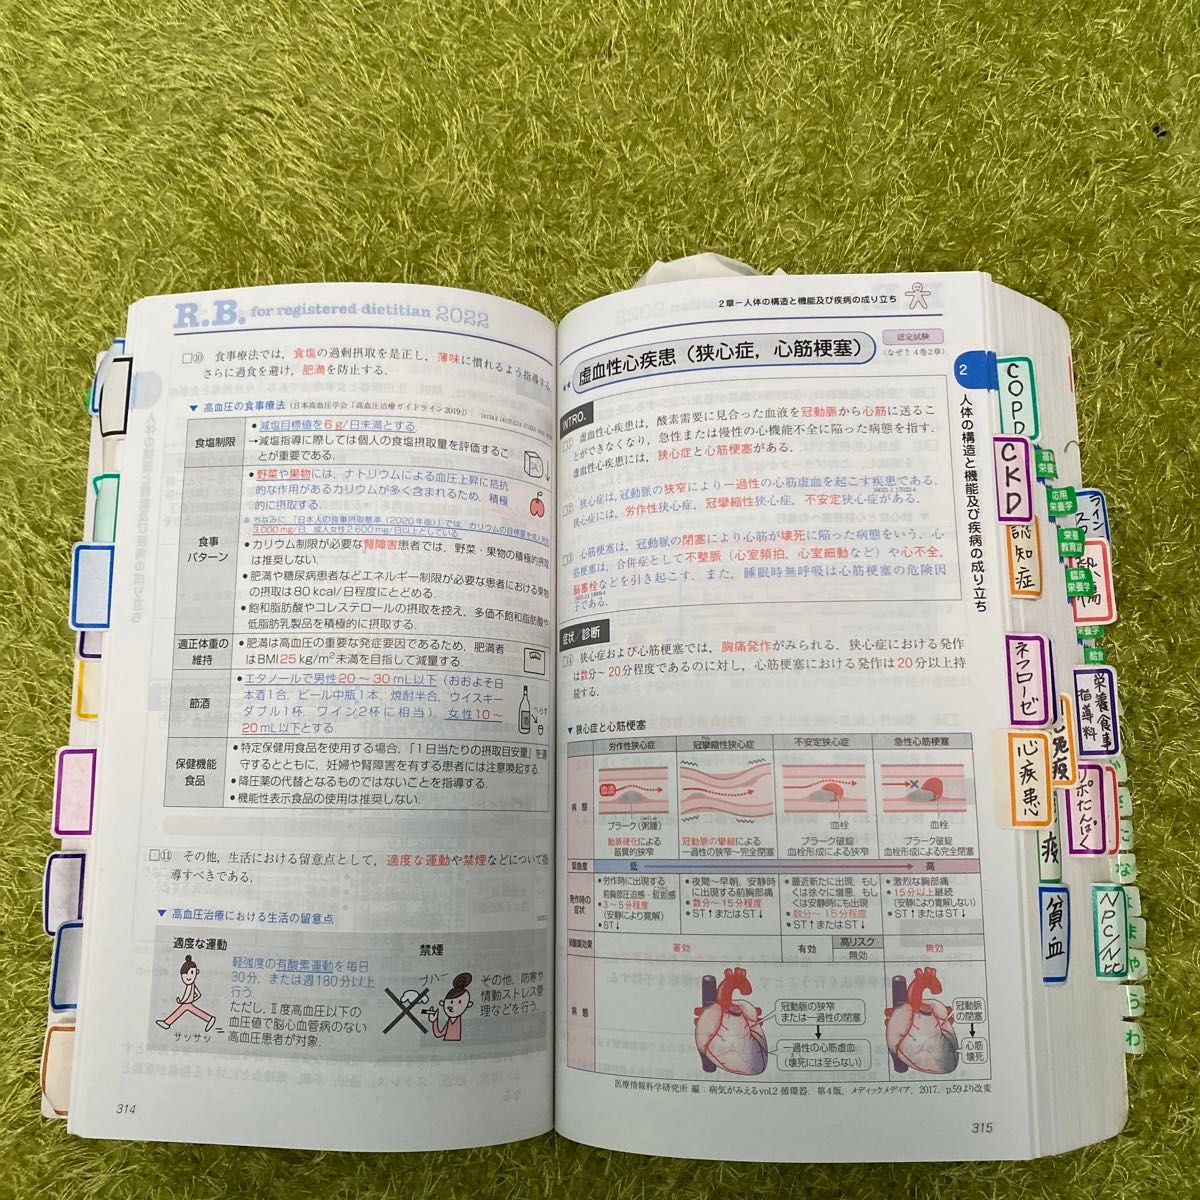 R.B. for registered dietitian 2022
□⑩ 食事療法では，食塩の過剰摂取を是正し，薄味に慣れるよう指導する．
さらに過食を避け，肥満を防止する．
▼ 高血圧の食事療法（日本高血圧学会「高血圧治療ガイドライン2019」）
食塩制限
• 減塩目標値を6g/日未満とする
→減塩指導に際しては個人の食塩摂取量を評価するこ
とが重要である．
食事
パターン
• 野菜や果物には，ナトリウムによる血圧上昇に拮抗
的な作用があるカリウムが多く含まれるため，積極
的に摂取する．
※ ちなみに「日本人の食事摂取基準（2020年版）」では，カリウムの目標量を成人男性
3,000mg/日，成人女性2,600mg/日以上としている．
• カリウム制限が必要な腎障害患者では，野菜・果物の積極的摂取
は推奨しない．
• 肥満や糖尿病患者などエネルギー制限が必要な患者における果物
の摂取は80kcal/日程度にとどめる．
• 飽和脂肪酸やコレステロールの摂取を控え，多価不飽和脂肪酸や
低脂肪乳製品を積極的に摂取する．
適正体重の
維持
• 肥満は高血圧の重要な発症要因であるため，肥満者
はBMI 25 kg/m²未満を目指して減量する．
節酒
• エタノールで男性20～30mL以下（おおよそ日
本酒1合，ビール中瓶1本，焼酎半合，ウイスキー
ダブル1杯，ワイン2杯に相当），女性10～
20mL以下とする．
へらす
保健機能
食品
• 特定保健用食品を使用する場合，「1日当たりの摂取目安量」を遵
守するとともに，妊婦や腎障害を有する患者には注意喚起する．
• 降圧薬の代替となるものではないことを指導する．
• 機能性表示食品の使用は推奨しない．
□⑪ その他，生活における留意点として，適度な運動や禁煙などについて指
導すべきである．
▼ 高血圧治療における生活の留意点
適度な運動
軽強度の有酸素運動を毎日
30分，または週180分以上
行う．
ただし，Ⅱ度高血圧以下の
血圧値で脳心血管病のない
高血圧患者が対象．
サッサッ
禁煙
その他，防寒や
情動ストレス管
理などを行う．
314
2章－人体の構造と機能及び疾病の成り立ち
虚血性心疾患（狭心症，心筋梗塞）
認定試験
（なぜ？ 4巻2章）
INTRO.
□① 虚血性心疾患は，酸素需要に見合った血液を冠動脈から心筋に送るこ
とができなくなり，急性または慢性の心機能不全に陥った病態を指す．
虚血性心疾患には，狭心症と心筋梗塞がある．
□② 狭心症は，冠動脈の狭窄により一過性の心筋虚血を起こす疾患である．
狭心症には，労作性狭心症，冠攣縮性狭心症，不安定狭心症がある．
□③ 心筋梗塞は，冠動脈の閉塞により心筋が壊死に陥った病態をいう．心
筋梗塞は，合併症として不整脈（心室頻拍，心室細動など）や心不全，
脳塞栓などを引き起こす．また，睡眠時無呼吸は心筋梗塞の危険因
子である．
症状／診断
□④ 狭心症および心筋梗塞では，胸痛発作がみられる．狭心症における発作
は数分～20分程度であるのに対し，心筋梗塞における発作は20分以上持
続する．
▼ 狭心症と心筋梗塞
労作性狭心症 冠攣縮性狭心症 不安定狭心症 急性心筋梗塞
病態
血流
プラーク（粥腫） 血栓 血栓
動脈硬化による
器質的狭窄
冠動脈の攣縮による
一過性の狭窄～完全閉塞
プラーク破綻
血栓形成による狭窄
プラーク破綻
血栓形成による完全閉塞
緊急度 低 高
発作時の
症状
• 労作時に出現する
前胸部圧迫感・絞扼感
• 3～5分程度
（安静により寛解）
• ST↓
• 夜間～早朝，安静時
に出現する前胸部痛
• 数分～15分程度
• ST↑またはST↓
• 最近新たに出現，もし
くは徐々に増悪，もし
くは安静時にも出現
• 数分～15分程度
• ST↑またはST↓
• 激烈な胸部痛
• 15分以上継続
（安静により寛解しない）
• ST↑またはST↓
硝酸薬効果 著効 有効 高リスク
無効 無効
病態
冠動脈の狭窄
または一過性の閉塞
一過性の心筋虚血
（壊死には至らない）
冠動脈
の閉塞
心筋
壊死
医療情報科学研究所 編：病気がみえるvol.2 循環器．第4版，メディックメディア，2017，p.59より改変
315
2
人体の構造と機能及び疾病の成り立ち
COPD
CKD
認知症
ネフローゼ
心疾患
貧血
基礎
栄養学
応用
栄養学
栄養
教育論
臨床
栄養学
給食
熱傷
栄養食事
指導料
リポたんぱく
NPC/N比
な
ま
や
ら
わ